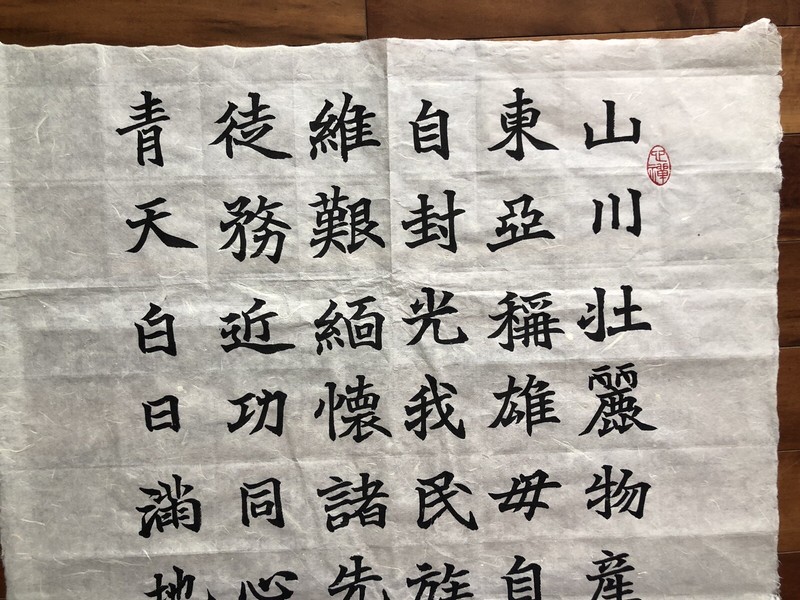 山川壯麗物産
東亞稱雄毋自
自封光我民族
維艱緬懷諸先
徒務近功同心
青天白日滿地